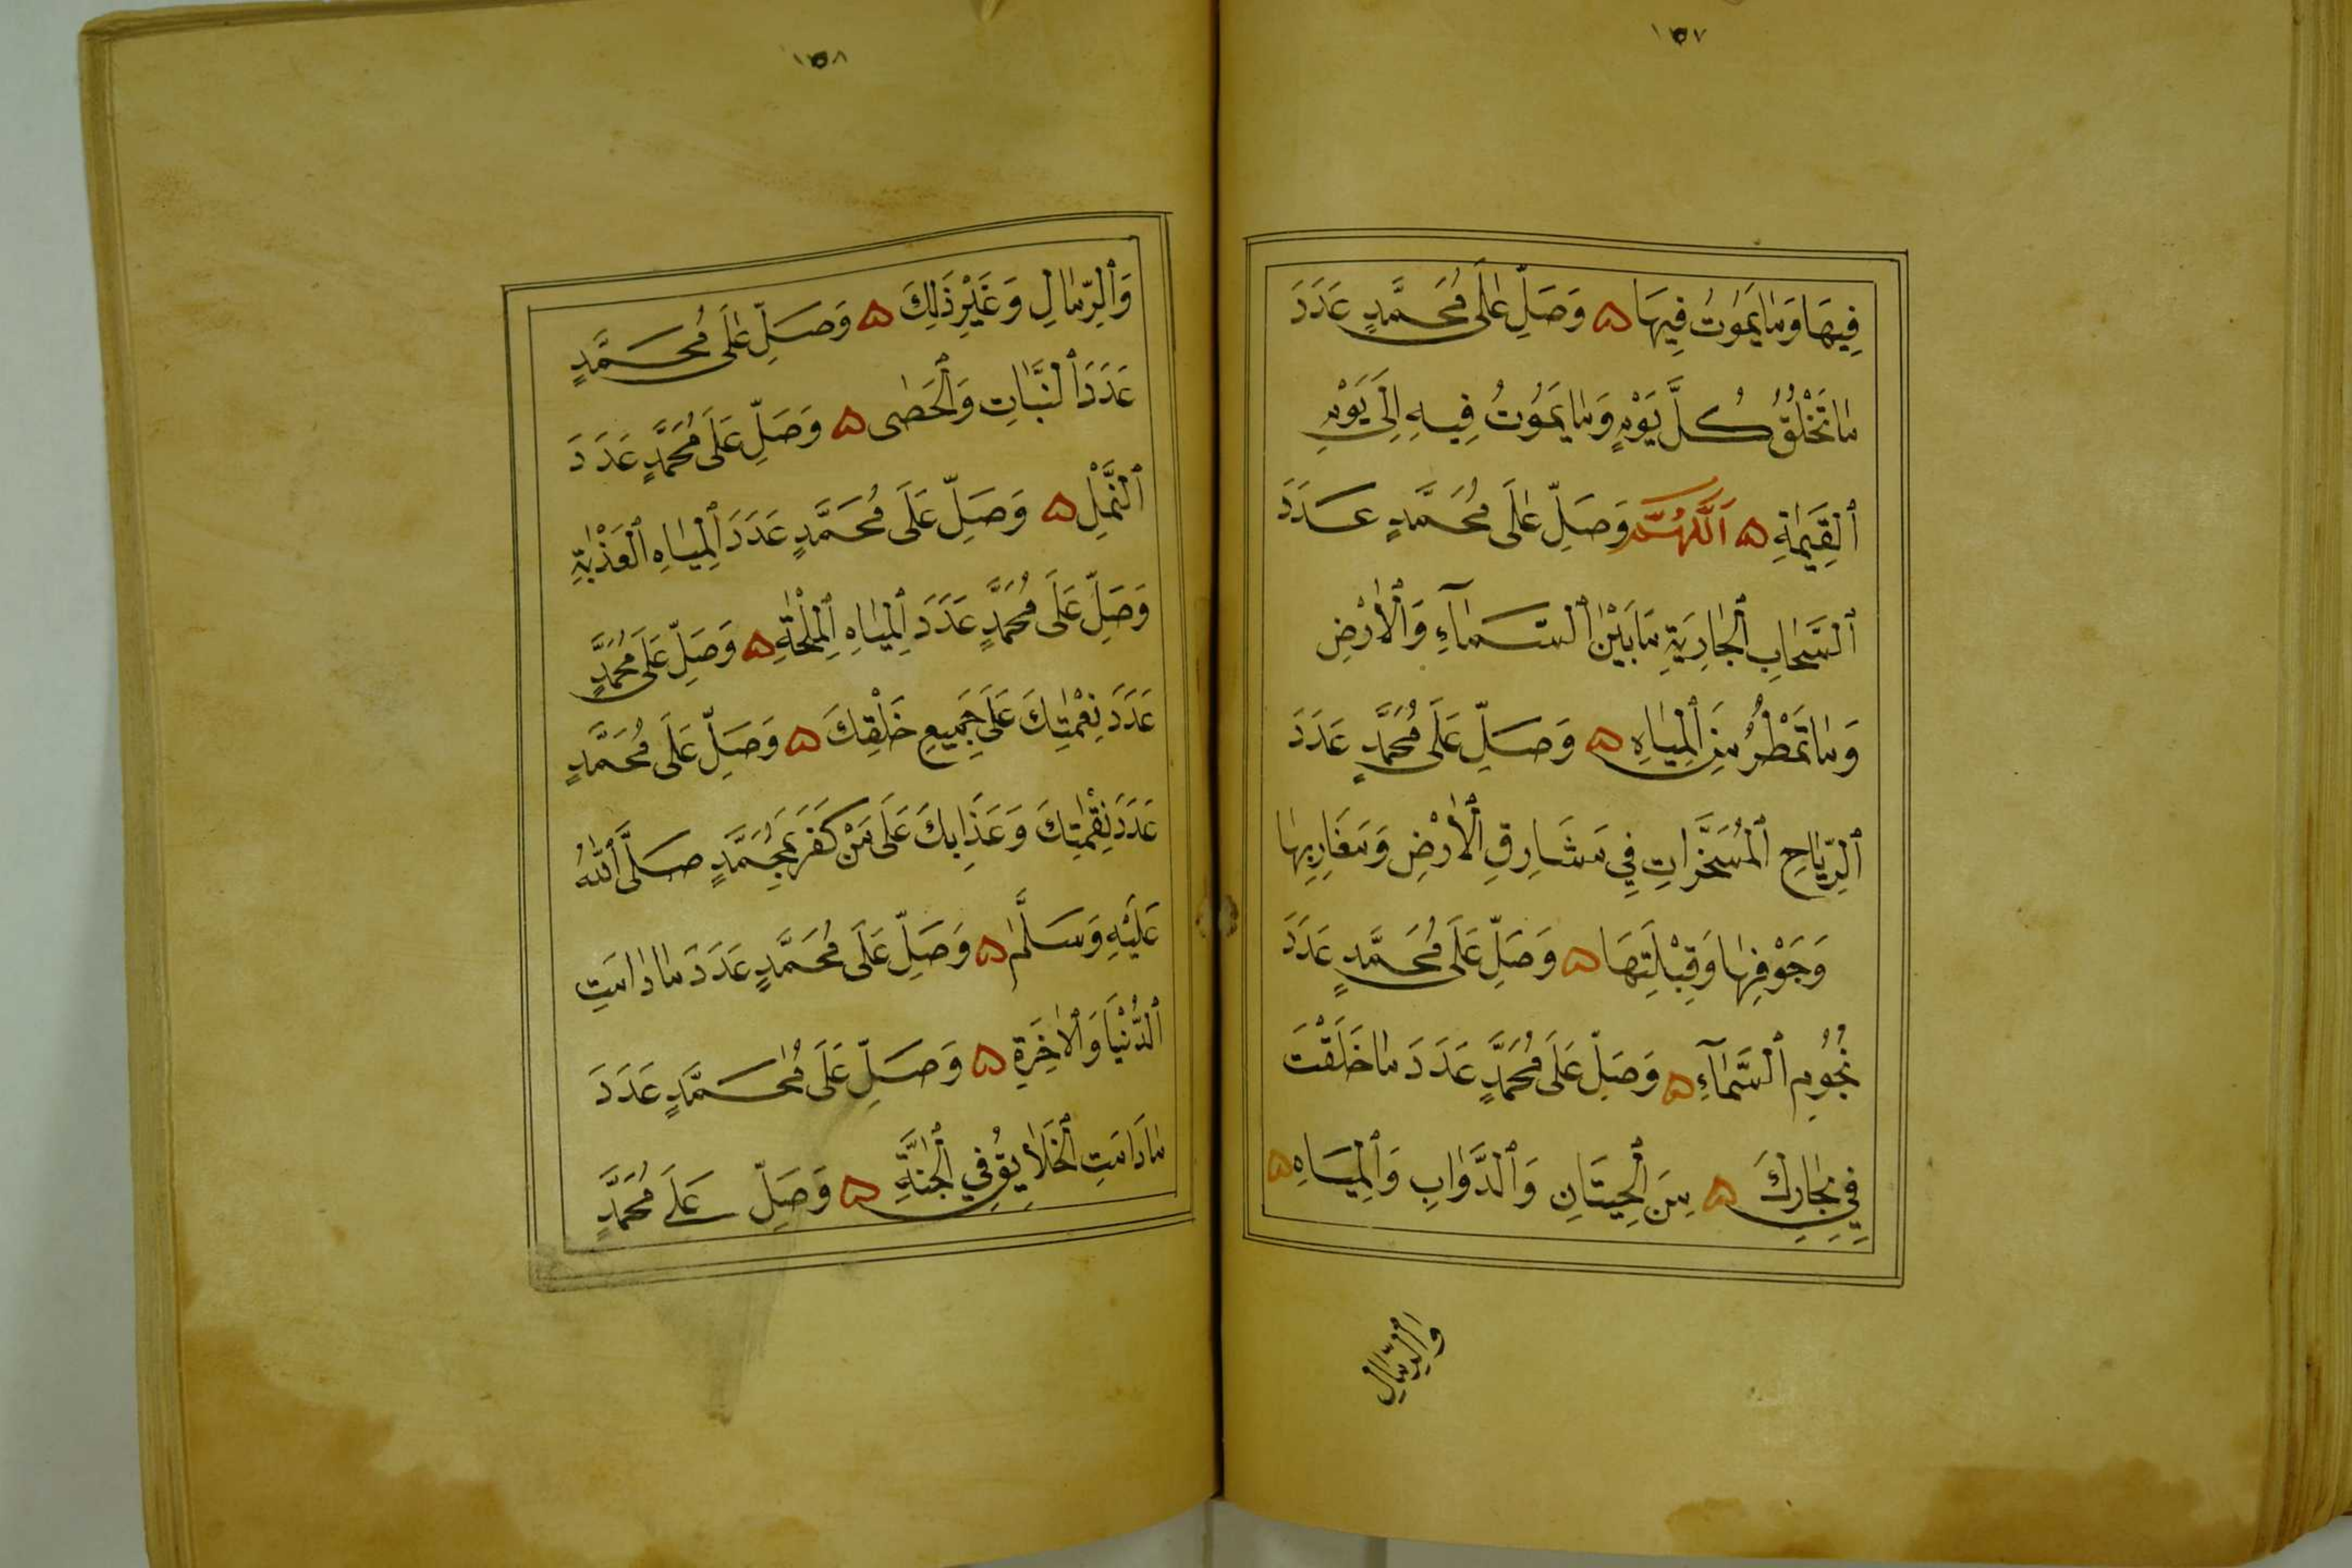 ١٥٧
فِيهَا وَمَا يَمُوتُ فِيهَا ۞ وَصَلِّ عَلَى مُحَمَّدٍ عَدَدَ
مَا تَخْلُقُ كُلَّ يَوْمٍ وَمَا يَمُوتُ فِيهِ إِلَى يَوْمِ
ٱلْقِيَمَةِ ۞ اَللَّهُمَّ وَصَلِّ عَلَى مُحَمَّدٍ عَدَدَ
ٱلسَّحَابِ ٱلْجَارِيَةِ مَا بَيْنَ ٱلسَّمَآءِ وَٱلْأَرْضِ
وَمَا تَمْطُرُ مِنَ ٱلْمِيَاهِ ۞ وَصَلِّ عَلَى مُحَمَّدٍ عَدَدَ
ٱلرِّيَاحِ ٱلْمُسَخَّرَاتِ فِي مَشَارِقِ ٱلْأَرْضِ وَمَغَارِبِهَا
وَجَوْفِهَا وَقِبْلَتِهَا ۞ وَصَلِّ عَلَى مُحَمَّدٍ عَدَدَ
نُجُومِ ٱلسَّمَآءِ ۞ وَصَلِّ عَلَى مُحَمَّدٍ عَدَدَ مَا خَلَقْتَ
فِي بِحَارِكَ ۞ مِنَ ٱلْحِيتَانِ وَٱلدَّوَابِ وَٱلْمِيَاهِ ۞
وَٱلرِّمَالِ
١٥٨
وَٱلرِّمَالِ وَغَيْرِ ذَلِكَ ۞ وَصَلِّ عَلَى مُحَمَّدٍ
عَدَدَ ٱلنَّبَاتِ وَٱلْحَصَى ۞ وَصَلِّ عَلَى مُحَمَّدٍ عَدَدَ
ٱلنَّمْلِ ۞ وَصَلِّ عَلَى مُحَمَّدٍ عَدَدَ ٱلْمِيَاهِ ٱلْعَذْبَةِ
وَصَلِّ عَلَى مُحَمَّدٍ عَدَدَ ٱلْمِيَاهِ ٱلْمِلْحَةِ ۞ وَصَلِّ عَلَى مُحَمَّدٍ
عَدَدَ نِعْمَتِكَ عَلَى جَمِيعِ خَلْقِكَ ۞ وَصَلِّ عَلَى مُحَمَّدٍ
عَدَدَ نِقْمَتِكَ وَعَذَابِكَ عَلَى مَنْ كَفَرَ بِمُحَمَّدٍ صَلَّى ٱللَّهُ
عَلَيْهِ وَسَلَّمَ ۞ وَصَلِّ عَلَى مُحَمَّدٍ عَدَدَ مَا دَامَتِ
ٱلدُّنْيَا وَٱلْآخِرَةِ ۞ وَصَلِّ عَلَى مُحَمَّدٍ عَدَدَ
مَا دَامَتِ ٱلْخَلَايِقُ فِي ٱلْجَنَّةِ ۞ وَصَلِّ عَلَى مُحَمَّدٍ